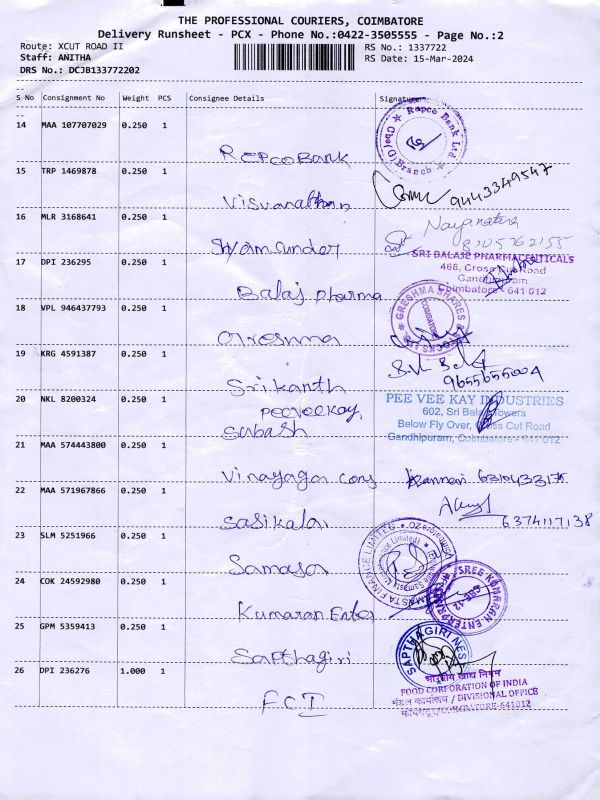 THE PROFESSIONAL COURIERS, COIMBATORE
Delivery Runsheet - PCX - Phone No.:0422-3505555 - Page No.:2
Route: XCUT ROAD II
RS No.: 1337722
Staff: ANITHA
RS Date: 15-Mar-2024
DRS No.: DCJB133772202
S No Consignment No Weight PCS Consignee Details Signature
14 MAA 107707029 0.250 1
Repco Bank
Repco Bank Ltd
Branch
15 TRP 1469878 0.250 1
Visvanathan
9443349547
16 MLR 3168641 0.250 1
Shyam sunder
17 DPI 236295 0.250 1
Balaji pharma
SRI BALAJI PHARMACEUTICALS
466, Cross Cut Road
Gandhipuram
Coimbatore - 641 012
18 VPL 946437793 0.250 1
Greshma
GRESHMA SHARES & STOCKS LTD
COIMBATORE
19 KRG 4591387 0.250 1
Srikanth
9655655004
20 NKL 8200324 0.250 1
Peeveekay,
Subash
PEE VEE KAY INDUSTRIES
602, Sri Balaji Towers
Below Fly Over, Cross Cut Road
Gandhipuram, Coimbatore - 641 012
21 MAA 574443800 0.250 1
Vinayaga cons
22 MAA 571967866 0.250 1
Sasikala
6374117138
23 SLM 5251966 0.250 1
Samasa
24 COK 24592980 0.250 1
Kumaran Enter
SREE KUMARAN ENTERPRISES
CBE-12
25 GPM 5359413 0.250 1
Sapthagiri
SAPTHAGIRI
26 DPI 236276 1.000 1
FCI
भारतीय खाद्य निगम
FOOD CORPORATION OF INDIA
मंडल कार्यालय / DIVISIONAL OFFICE
कोयम्बटूर/COIMBATORE-641012